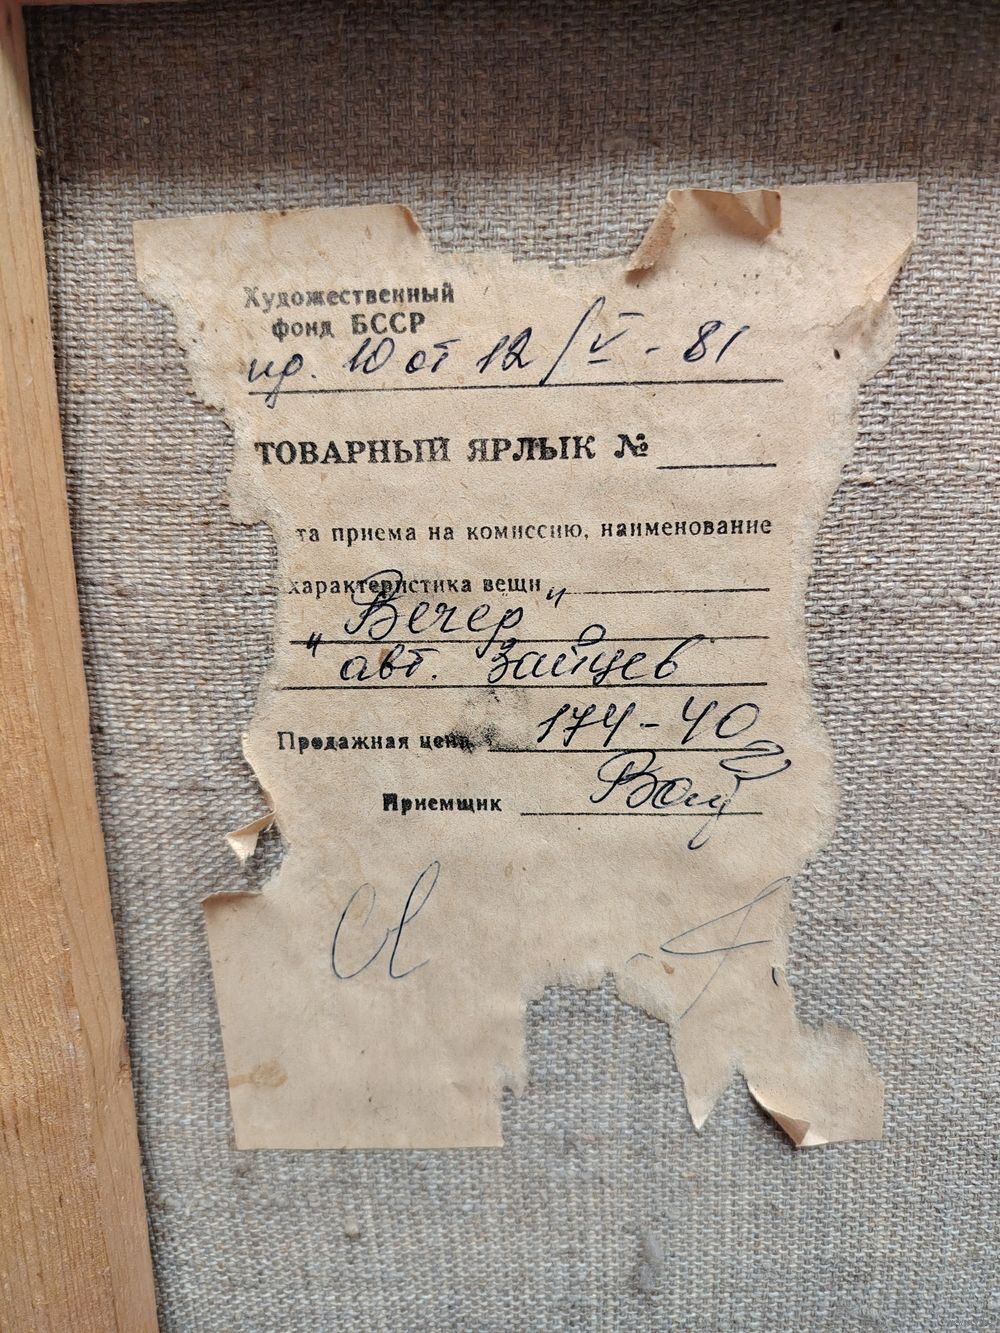 Художественный
фонд БССР
пр. 10 от 12/V - 81
ТОВАРНЫЙ ЯРЛЫК №
та приема на комиссию, наименование
характеристика вещи
„Вечер"
авт. Зайцев
Продажная цена 174-40
Приемщик